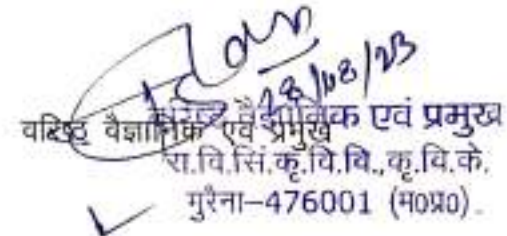 28/08/23
वरिष्ठ वैज्ञानिक एवं प्रमुख
वरिष्ठ वैज्ञानिक एवं प्रमुख
रा.वि.सिं.कृ.वि.वि.,कृ.वि.के.
मुरैना–476001 (म0प्र0)